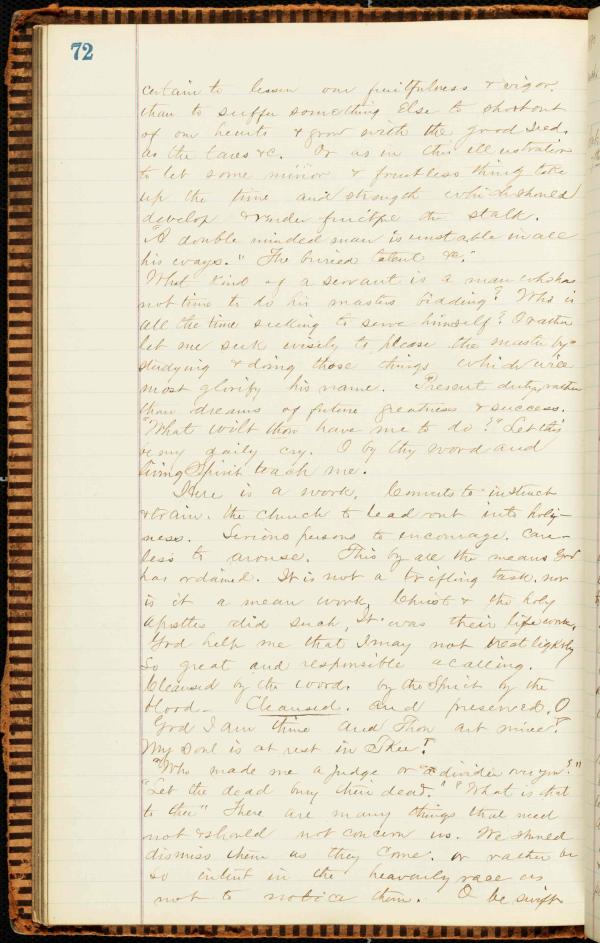 72
certain to lessen our fruitfulness & vigor.
than to suffer something Else to shoot out
of our hearts & grow with the good seed.
as the tares &c. Or as in this illustration
to let some minor & fruitless thing take
up the time and strength which should
develop & render fruitful the stalk.
"A double minded man is unstable in all
his ways." "The buried talent &c."
What kind of a servant is a man who has
not time to do his masters bidding? Who is
all the time seeking to serve himself? O rather
let me seek wisely to please the master by
studying & doing those things which will
most glorify his name. Present duty, rather
than dreams of future greatness & success.
"What wilt thou have me to do?" Let this
be my daily cry. O by thy word and
living Spirit teach me.
Here is a work. Converts to instruct
& train. the church to lead out into holi-
ness. Serious persons to encourage. care-
less to arouse. This by all the means God
has ordained. It is not a trifling task. nor
is it a mean work. Christ & the holy
apostles did such, It was their life work.
God help me that I may not treat lightly
so great and responsible a calling.
Cleansed by the word. by the Spirit by the
blood. Cleansed. and preserved. O
God I am thine and Thou art mine!
My soul is at rest in Thee!
"Who made me a judge or a divider over you?"
"Let the dead bury their dead." "What is that
to thee" There are many things that need
not & should not concern us. We should
dismiss them as they come. or rather be
so intent in the heavenly race as
not to notice them. O be swift